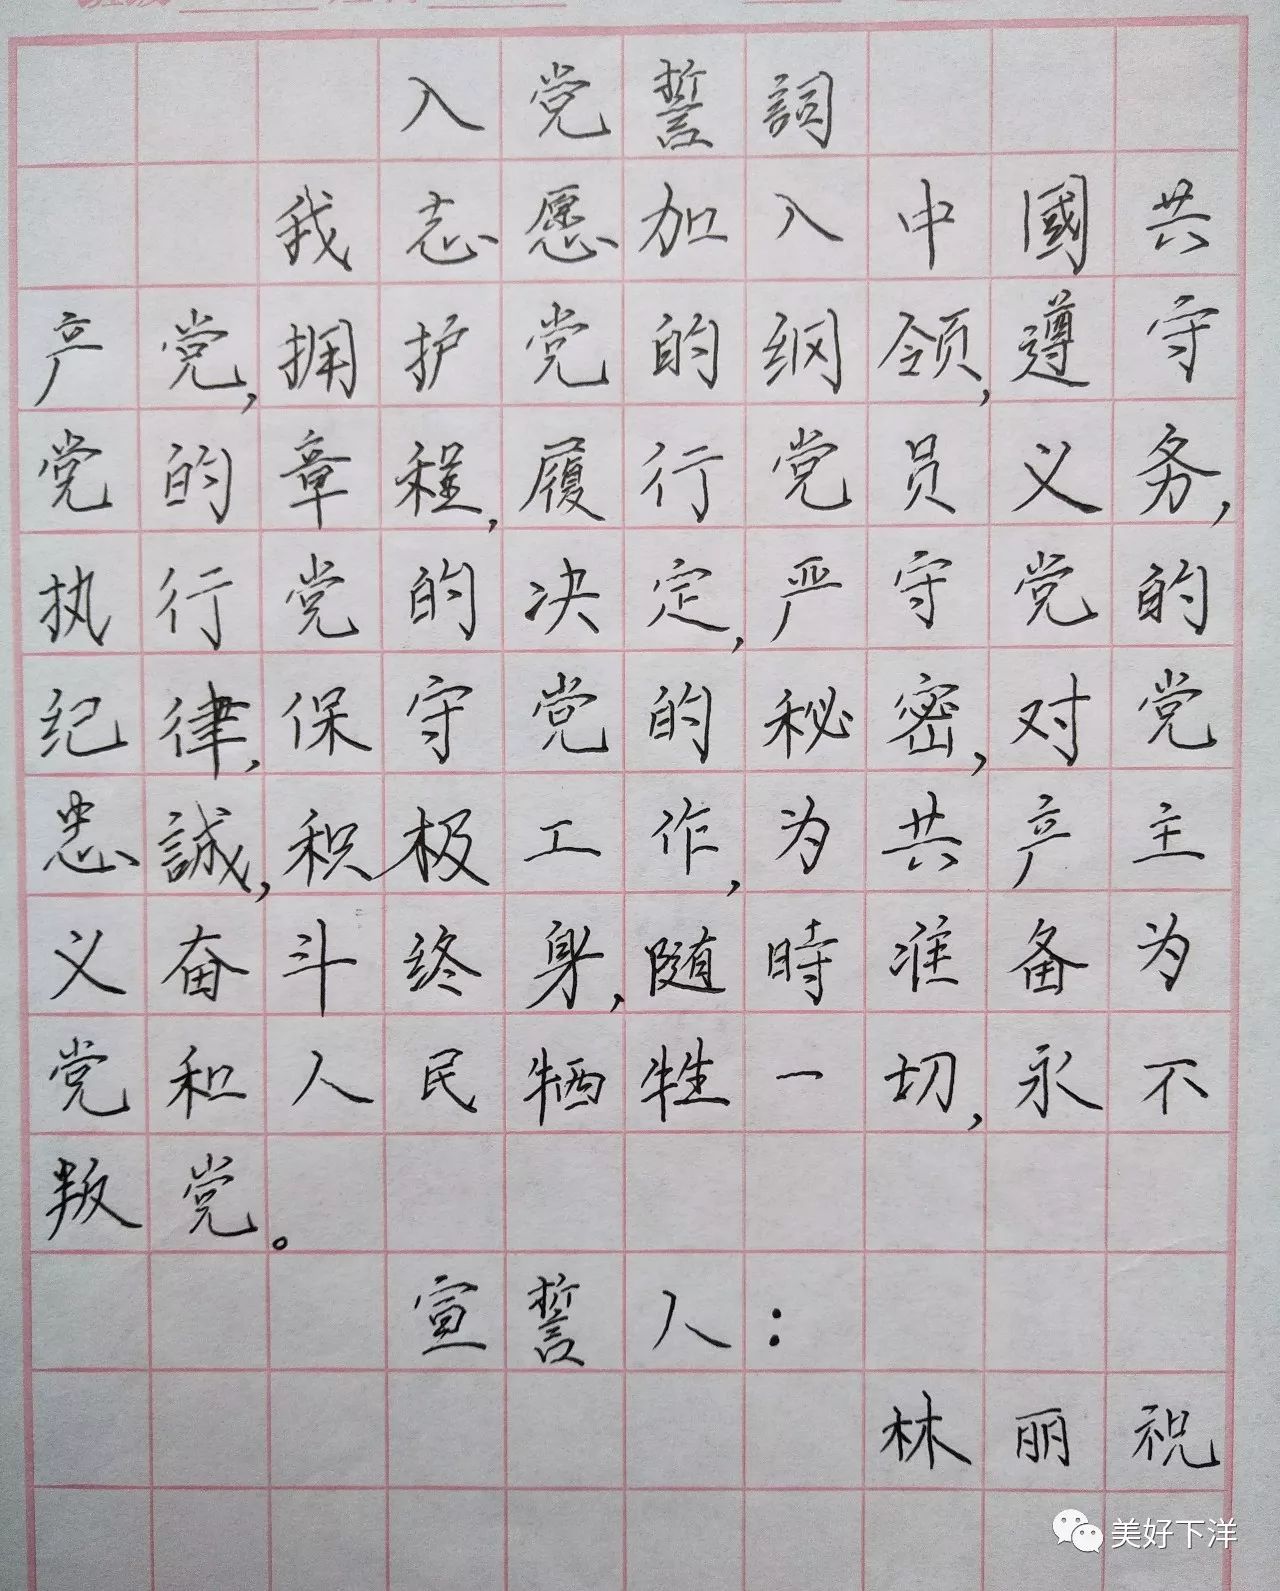 入党誓詞
我志愿加入中國共
产党,拥护党的纲领,遵守
党的章程,履行党员义务,
执行党的决定,严守党的
纪律,保守党的秘密,对党
忠誠,积极工作,为共产主
义奋斗终身,随時准备为
党和人民牺牲一切,永不
叛党。
宣誓人:
林丽祝
美好下洋